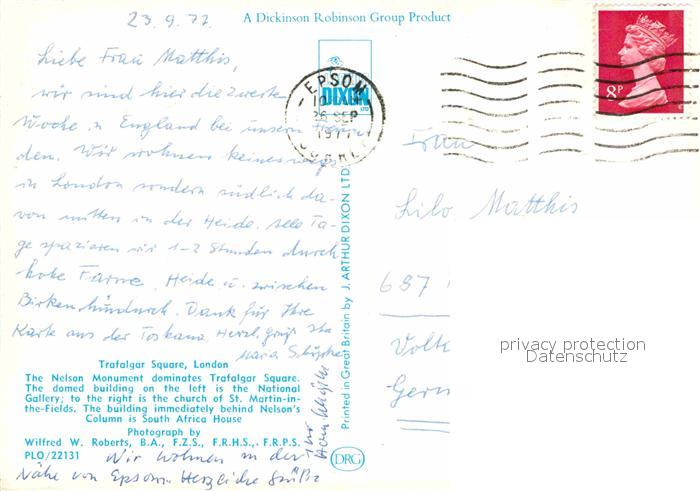 23.9.77
A Dickinson Robinson Group Product
Liebe Frau Matthis,
wir sind hier die zweite
Woche in England bei unsern Freun
den. Wir wohnen keineswegs
in London sondern südlich da-
von mitten in der Heide. Alle Ta-
ge spazieren wir 1-2 Stunden durch
hohe Farne, Heide u. zwischen
Birken hindurch. Dank für Ihre
Karte aus der Toskana. Herzl. grüßt Sie
Maria
Trafalgar Square, London
The Nelson Monument dominates Trafalgar Square.
The domed building on the left is the National
Gallery; to the right is the church of St. Martin-in-
the-Fields. The building immediately behind Nelson's
Column is South Africa House
Photograph by
Wilfred W. Roberts, B.A., F.Z.S., F.R.H.S., F.R.P.S.
PLO/22131
Wir wohnen in der
Nähe von Epsom. Herzliche Grüße
Ihr
DIXON
LTD
EPSOM
26 SEP
1977
SURREY
Printed in Great Britain by J. ARTHUR DIXON LTD
DRG
8P
Frau
Lilo Matthis
687
Volk
Germ
privacy protection
Datenschutz